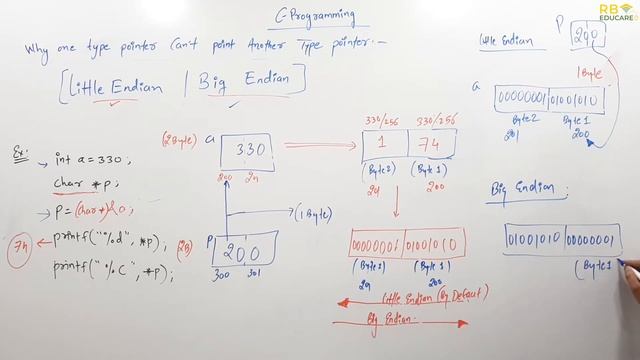 C-Programming
RB
EDUCARE
Why one type pointer Can't point Another Type pointer.-
[Little Endian | Big Endian]
Ex:
int a = 330;
char *p;
P = (char*)&a;
printf("%d", *p);
printf("%c", *p);
74
(2Byte) a
330
200 201
(1Byte)
(2B) P
200
300 301
330/256 330/256
1 74
(Byte2) (Byte1)
201 200
00000001 01001010
(Byte2) (Byte1)
201 200
Little Endian (By Default)
Big Endian
Little Endian
P
200
1 Byte
a
00000001 01001010
Byte2 Byte1
201 200
Big Endian:
01001010 00000001
(Byte1